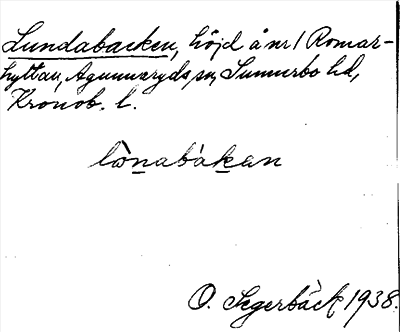 Lundabacken, höjd å nr 1 Romar-
hyttan, Agunnaryds sn, Sunnerbo hd,
Kronob. l.
lònabàkan
O. Segerbäck 1938.